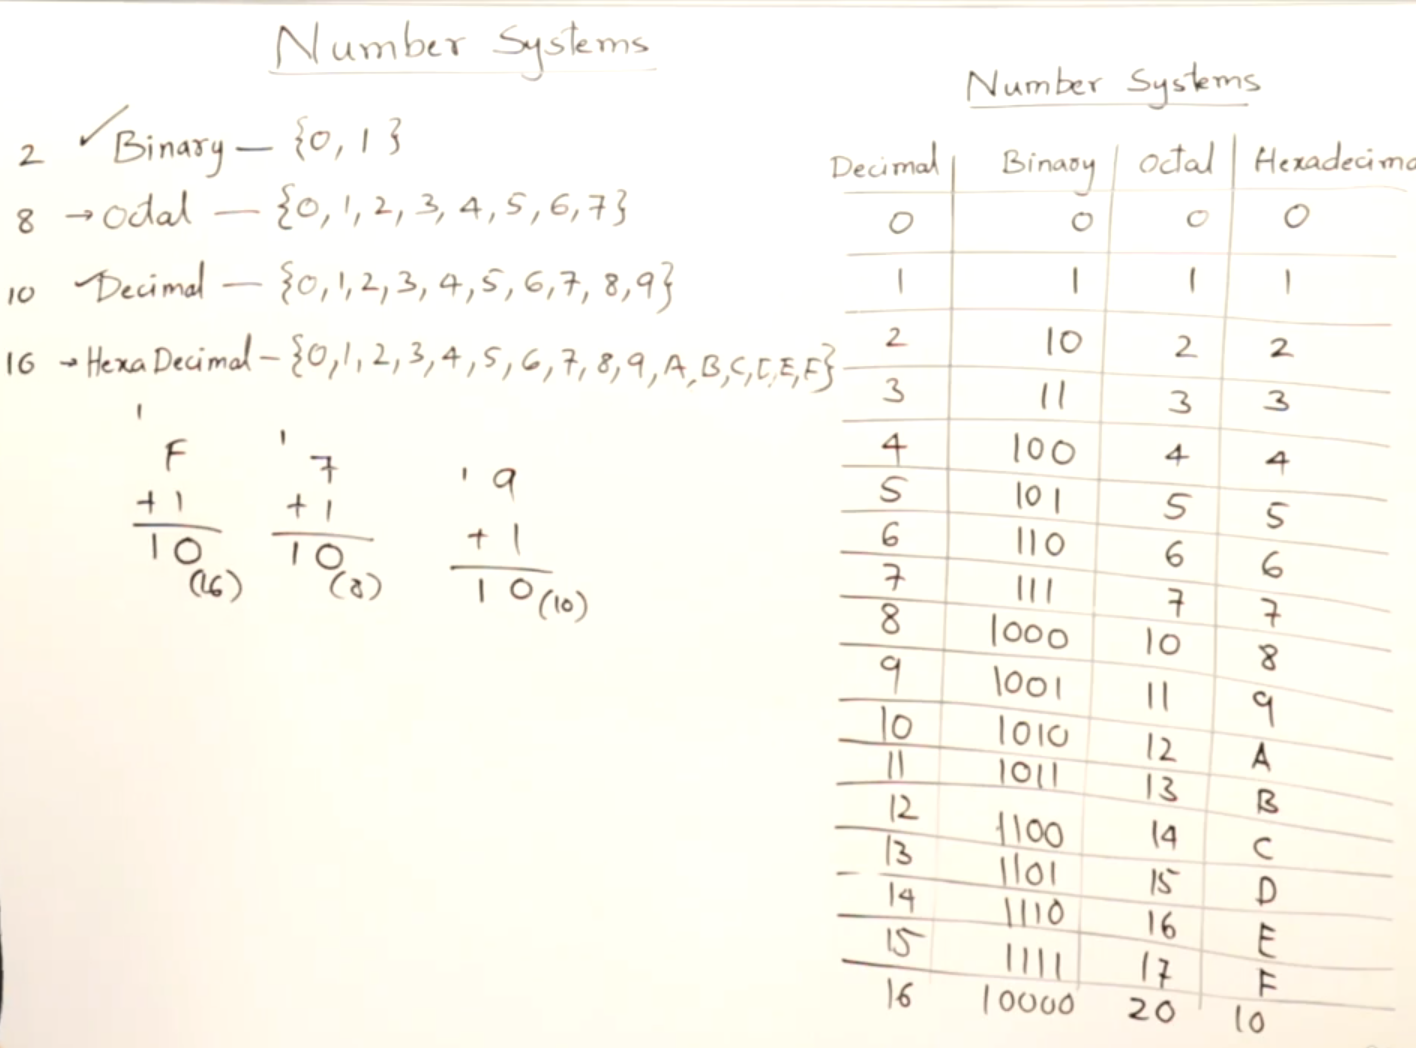 Number Systems
2 ✓Binary — {0, 1}
8 → Octal — {0, 1, 2, 3, 4, 5, 6, 7}
10 Decimal — {0, 1, 2, 3, 4, 5, 6, 7, 8, 9}
16 → Hexa Decimal — {0, 1, 2, 3, 4, 5, 6, 7, 8, 9, A, B, C, D, E, F}
1
F
+ 1
10(16)
1
7
+ 1
10(8)
1 9
+ 1
10(10)
Number Systems
Decimal Binary Octal Hexadecima
0 0 0 0
1 1 1 1
2 10 2 2
3 11 3 3
4 100 4 4
5 101 5 5
6 110 6 6
7 111 7 7
8 1000 10 8
9 1001 11 9
10 1010 12 A
11 1011 13 B
12 1100 14 C
13 1101 15 D
14 1110 16 E
15 1111 17 F
16 10000 20 10